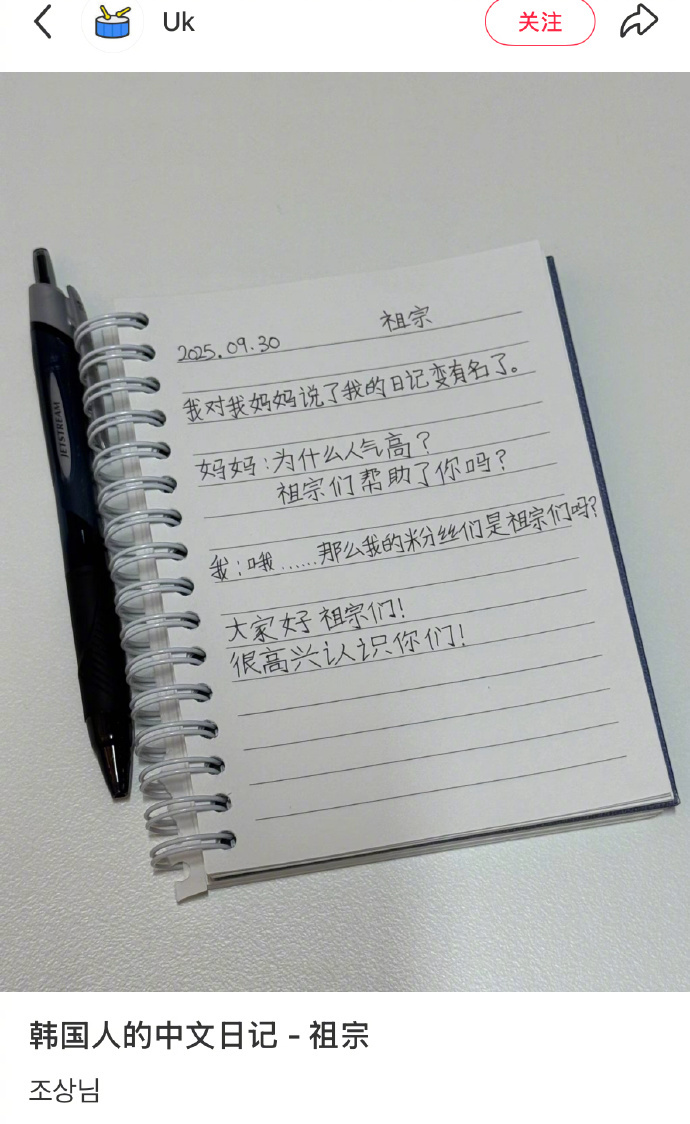 Uk
关注
祖宗
2025.09.30
我对我妈妈说了我的日记变有名了。
妈妈:为什么人气高?
祖宗们帮助了你吗?
我:哦……那么我的粉丝们是祖宗们吗?
大家好祖宗们!
很高兴认识你们!
JETSTREAM
韩国人的中文日记 - 祖宗
조상님